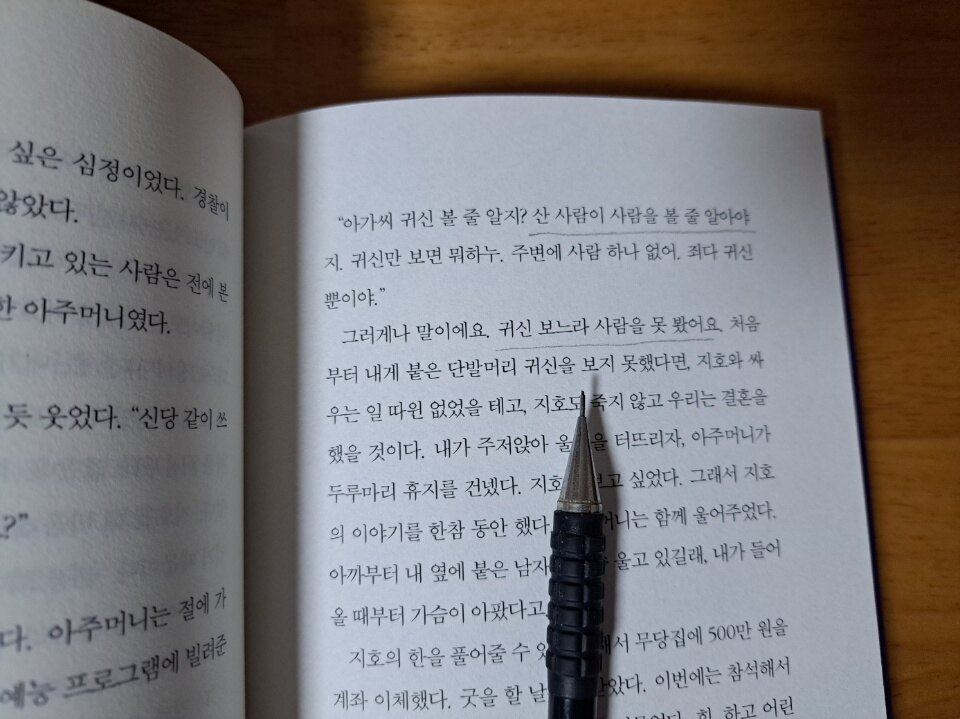 싶은 심정이었다. 경찰이
않았다.
키고 있는 사람은 전에 본
한 아주머니였다.
듯 웃었다. “신당 같이 쓰
?”
다. 아주머니는 절에 가
예능 프로그램에 빌려준
“아가씨 귀신 볼 줄 알지? 산 사람이 사람을 볼 줄 알아야
지. 귀신만 보면 뭐하누. 주변에 사람 하나 없어. 죄다 귀신
뿐이야.”
그러게나 말이에요. 귀신 보느라 사람을 못 봤어요. 처음
부터 내게 붙은 단발머리 귀신을 보지 못했다면, 지호와 싸
우는 일 따윈 없었을 테고, 지호도 죽지 않고 우리는 결혼을
했을 것이다. 내가 주저앉아 울 을 터뜨리자, 아주머니가
두루마리 휴지를 건넸다. 지호 보고 싶었다. 그래서 지호
의 이야기를 한참 동안 했다. 머니는 함께 울어주었다.
아까부터 내 옆에 붙은 남자 울고 있길래, 내가 들어
올 때부터 가슴이 아팠다고
지호의 한을 풀어줄 수 있 해서 무당집에 500만 원을
계좌 이체했다. 굿을 할 날 았다. 이번에는 참석해서
하고 어린